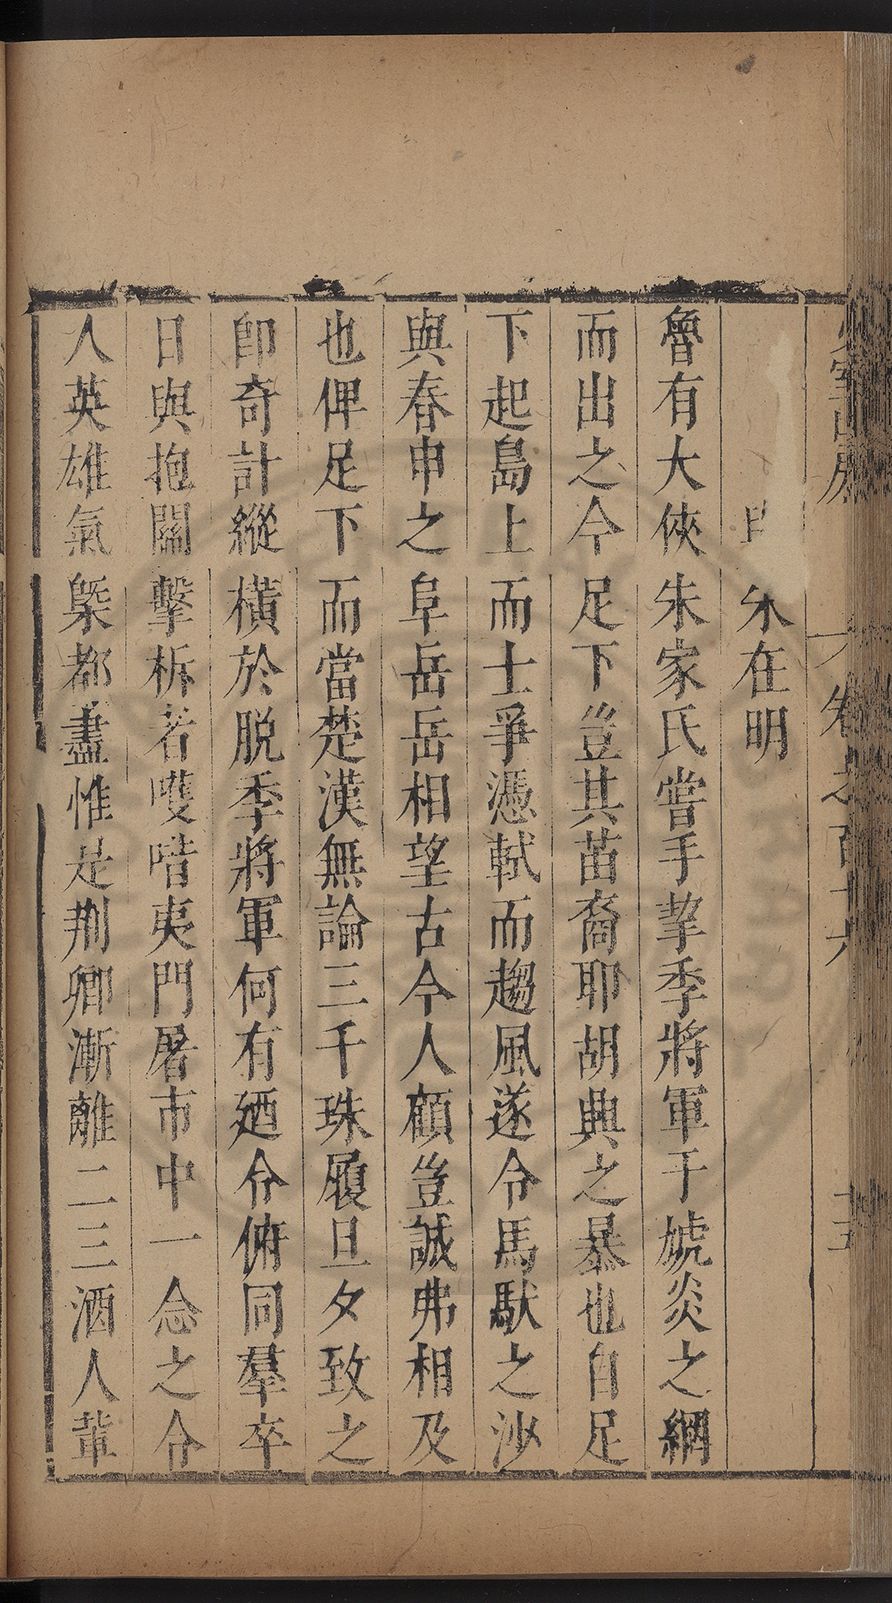 少室山房
卷之百十六
十五
朱在明
魯有大俠朱家氏嘗手挈季將軍于虓炎之網
而出之今足下豈其苗裔耶胡典之暴也自足
下起島上而士爭憑軾而趨風遂令馬馱之沙
與春申之阜岳岳相望古今人顧豈誠弗相及
也俾足下而當楚漢無論三千珠履旦夕致之
卽奇計縱橫於脫季將軍何有廼令俯同羣卒
日與抱關擊柝若嚄唶夷門屠市中一念之令
人英雄氣槩都盡惟是荆卿漸離二三酒人輩